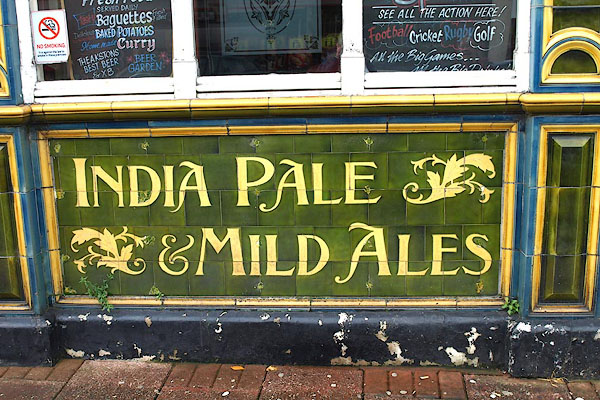 Fresh FOOD
SERVED DAILY
Baguettes
BAKED POTATOES
Home made Curry
THEAKSTONS
BEST BEER
BEER
GARDEN
NO SMOKING
SEE ALL THE ACTION HERE!
Football Cricket Rugby Golf
All the Big Games...
INDIA PALE
& MILD ALES